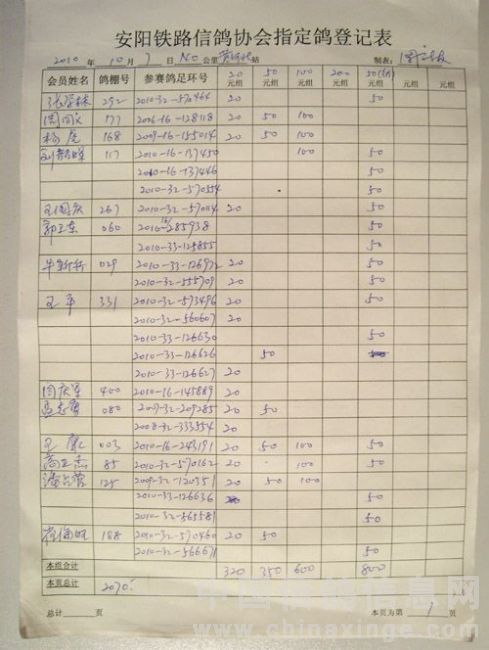 安阳铁路信鸽协会指定鸽登记表
2010 年 10 月 7 日 公里 站 制表:
会员姓名 鸽棚号 参赛鸽足环号 20元组 50元组 100元组 200元组 50(3角)元组
292 2010-32-570464 20 50
177 2006-16-128118 20 50 100
168 2009-16-155014 20 50 100
117 2010-16-137450 100 50
2010-16-137446 50
2010-32-570554 50
王国庆 267 2010-32-570114 20 50
郭玉东 060 285938 20 50
2010-33-125855 50
029 2010-33-126972 20 50
2010-32-555709 20 50
王平 331 2010-32-573496 20 50
2010-32-560607 20
2010-33-126630 50
2010-33-126626 50
2010-33-126627 20
周庆军 400 2010-16-145889 20
孟志勇 080 2009-32-209285 20 50
2008-32-333554 20
003 2010-16-243191 20 50 100 50
高玉杰 85 2010-32-570162 20 100 50
125 2009-32-120351 20 50 100
2010-33-126636 50
2010-32-565581 50
188 2010-32-570460 20 50
2010-32-566671 50
本组合计 320 350 600 800
本页总计 2070
总计 页 本页为第 1 页
中国信鸽信息网
www.chinaxinge.com